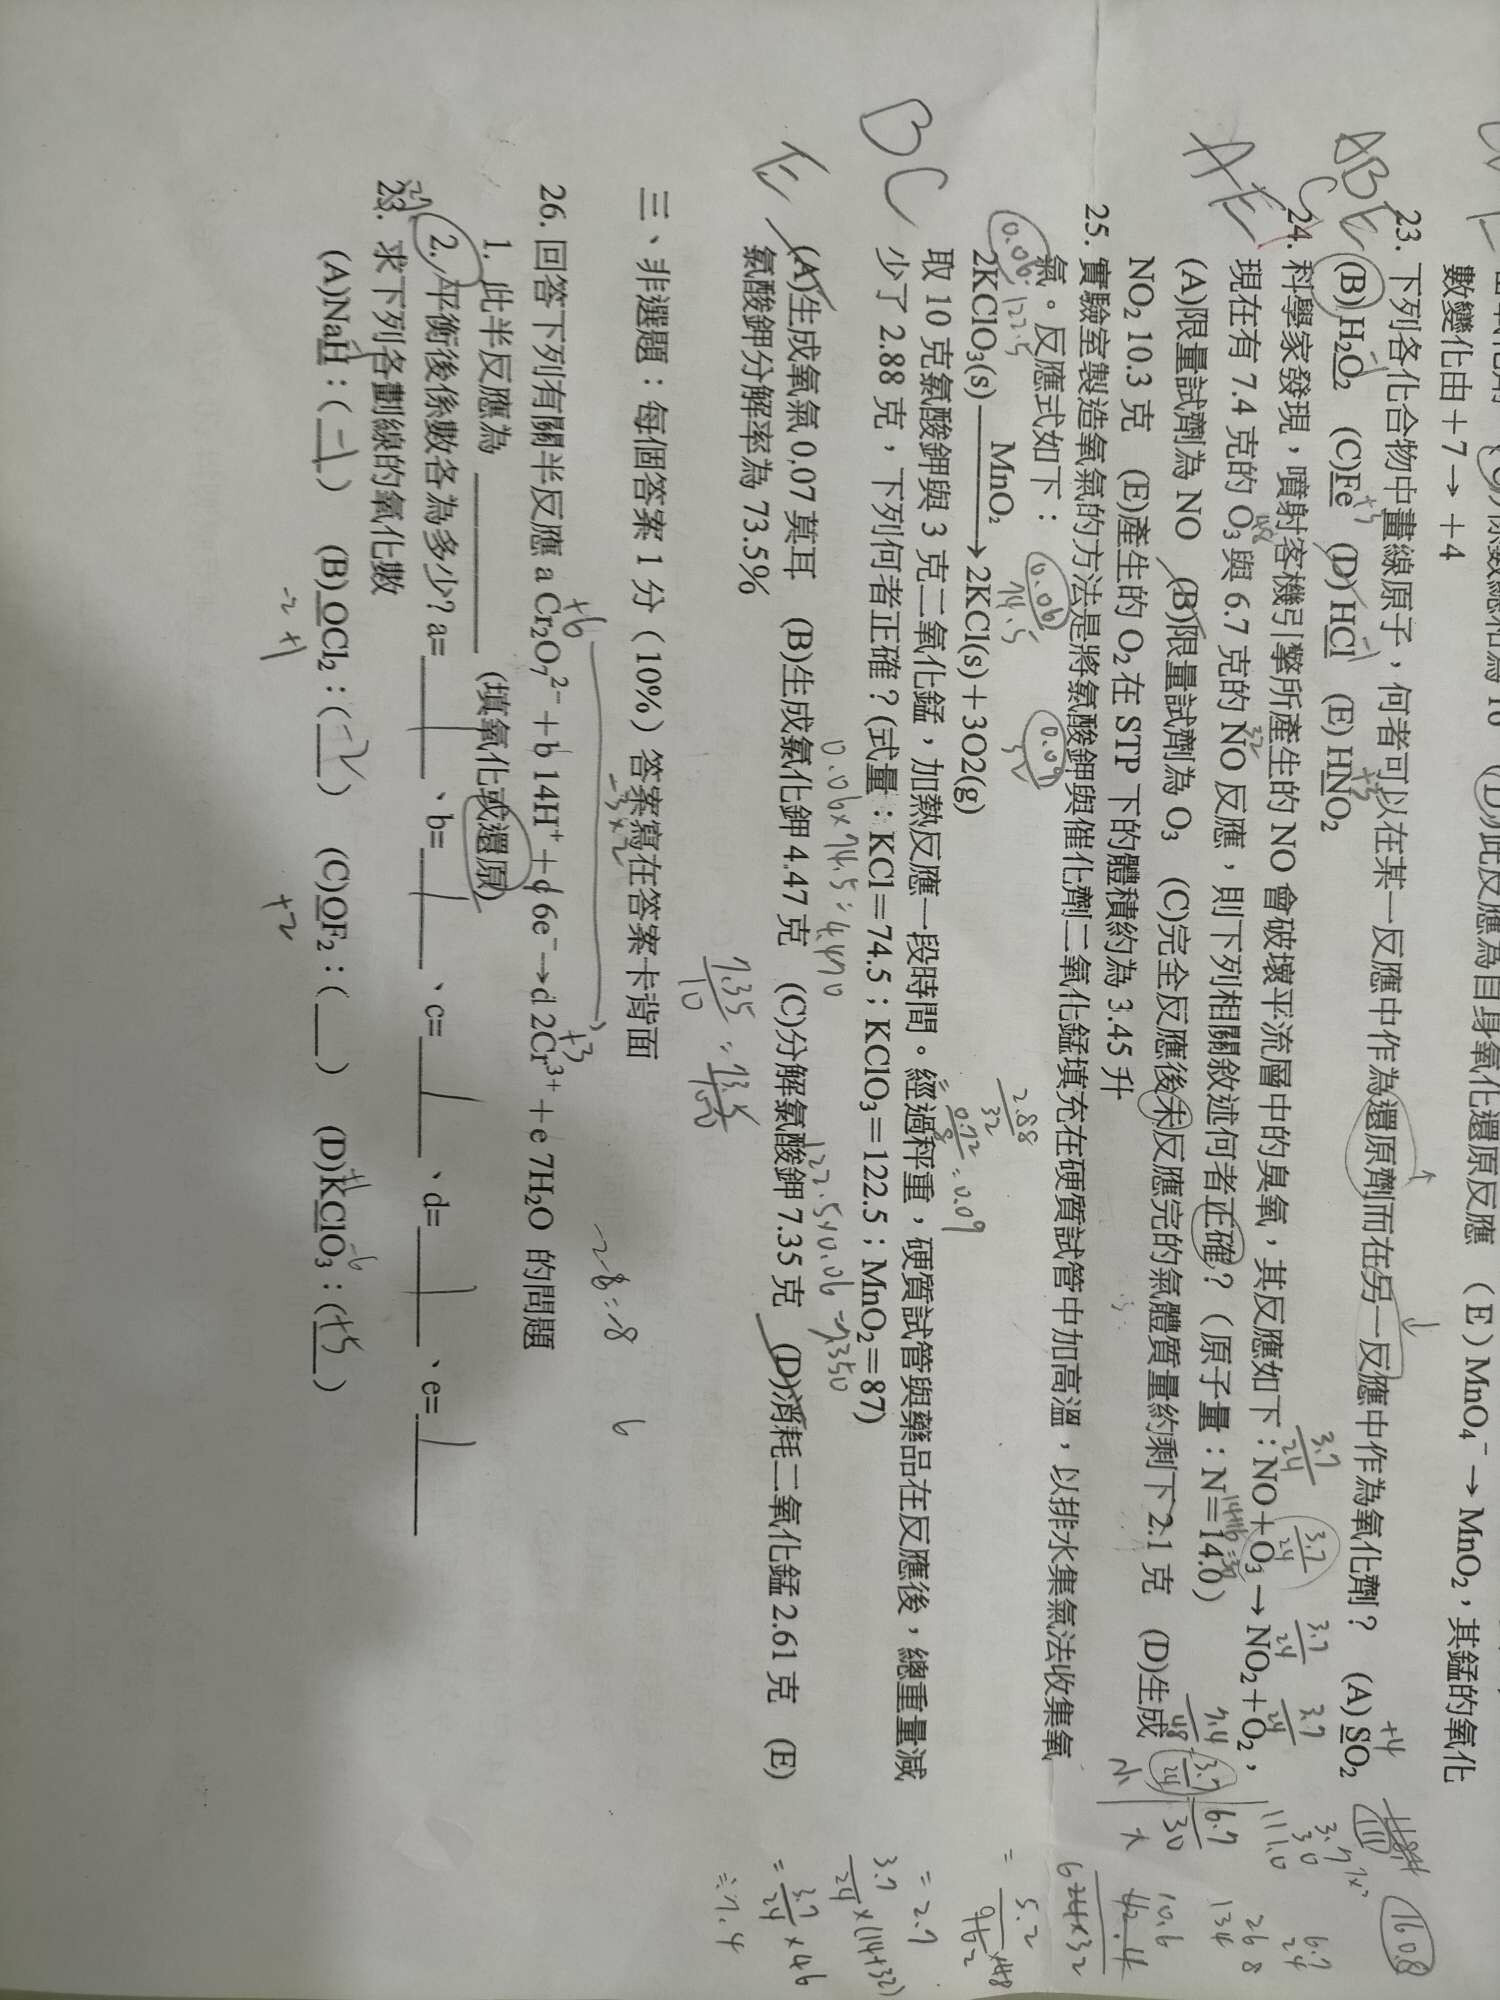 數變化由+7→+4
23. 下列各化合物中畫線原子，何者可以在某一反應中作為還原劑而在另一反應中作為氧化劑？ (A) SO₂
(B)H₂O₂ (C)Fe (D) HCl (E) HNO₂
24. 科學家發現，噴射客機引擎所產生的 NO 會破壞平流層中的臭氧，其反應如下：NO+O₃→NO₂+O₂，
現在有 7.4 克的 O₃ 與 6.7 克的 NO 反應，則下列相關敘述何者正確？（原子量：N=14.0）
(A)限量試劑為 NO (B)限量試劑為 O₃ (C)完全反應後未反應完的氣體質量約剩下 2.1 克 (D)生成
NO₂ 10.3 克 (E)產生的 O₂ 在 STP 下的體積約為 3.45 升
25. 實驗室製造氧氣的方法是將氯酸鉀與催化劑二氧化錳填充在硬質試管中加高溫，以排水集氣法收集氧
氣。反應式如下：
MnO₂
2KClO₃(s)→2KCl(s)+3O2(g)
取 10 克氯酸鉀與 3 克二氧化錳，加熱反應一段時間。經過秤重，硬質試管與藥品在反應後，總重量減
少了 2.88 克，下列何者正確？(式量：KCl=74.5；KClO₃=122.5；MnO₂=87)
(A)生成氧氣 0.07 莫耳 (B)生成氯化鉀 4.47 克 (C)分解氯酸鉀 7.35 克 (D)消耗二氧化錳 2.61 克 (E)
氯酸鉀分解率為 73.5%
三、非選題：每個答案 1 分（10%）答案寫在答案卡背面
26. 回答下列有關半反應 a Cr₂O₇²⁻+b 14H⁺+c 6e⁻→d 2Cr³⁺+e 7H₂O 的問題
1. 此半反應為 ________ (填氧化或還原)
2. 平衡後係數各為多少？a=______、b=______、c=______、d=______、e=______
27. 求下列各劃線的氧化數
(A)NaH：( -1 ) (B)OCl₂：( -2 ) (C)OF₂：(___) (D)KClO₃：( +5 )
-2 +1 +2
ABE
AE
BC
E
+4
+3
+6
+3
-3×2
0.06
0.06
0.09
122.5
74.5
32
0.06×74.5=4.470
122.5×0.06=7.350
2.88
32
0.72
8
=0.09
7.35
10
=73.5
100
3.7
24
7.4
48
6.7
30
小
大
3.7
24
×(14+32)
=3.7
24
×46
≒7.4